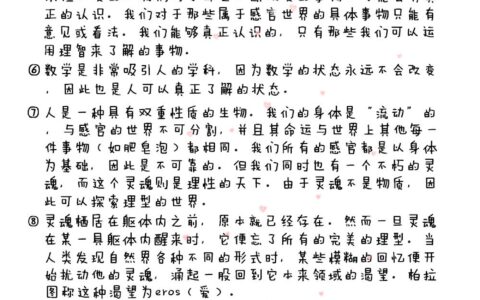 正的认识。我们对于那些属于感官世界的具体事物只能有
意见或看法。我们能够真正认识的，只有那些我们可以运
用理智来了解的事物。
⑥数学是非常吸引人的学科，因为数学的状态永远不会改变
，因此也是人可以真正了解的状态。
⑦人是一种具有双重性质的生物。我们的身体是“流动”的
，与感官的世界不可分割，并且其命运与世界上其他每一
件事物（如肥皂泡）都相同。我们所有的感官都是以身体
为基础，因此是不可靠的。但我们同时也有一个不朽的灵
魂，而这个灵魂则是理性的天下。由于灵魂不是物质，因
此可以探索理型的世界。
⑧灵魂栖居在躯体内之前，原本就已经存在。然而一旦灵魂
在某一具躯体内醒来时，它便忘了所有的完美的理型。当
人类发现自然界各种不同的形式时，某些模糊的回忆便开
始扰动他的灵魂，涌起一股回到它本来领域的渴望。帕拉
图称这种渴望为eros（爱）。